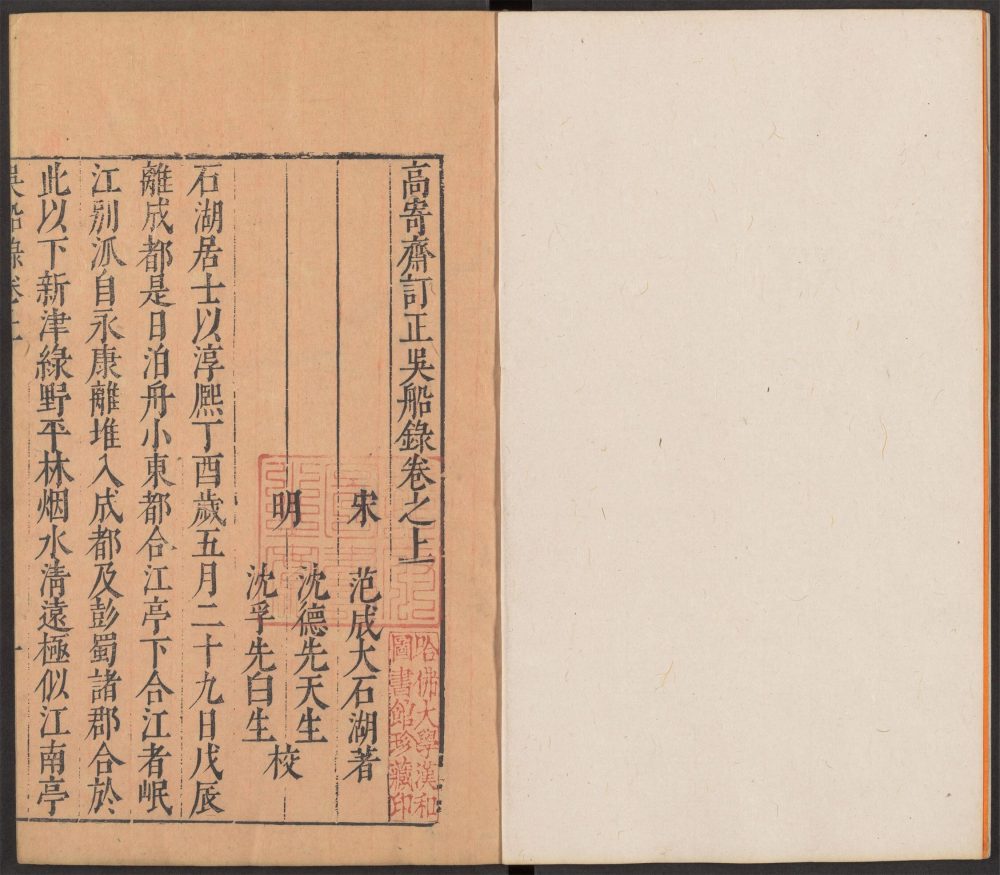 高寄齋訂正吳船錄卷之上
宋 范成大石湖著
明 沈德先天生
沈孚先白生 校
石湖居士以淳熈丁酉歲五月二十九日戊辰
離成都是日泊舟小東郭合江亭下合江者岷
江別派自永康離堆入成都及彭蜀諸郡合於
此以下新津綠野平林烟水清遠極似江南亭
吳船錄卷上
一
哈佛大學漢和
圖書館珍藏印